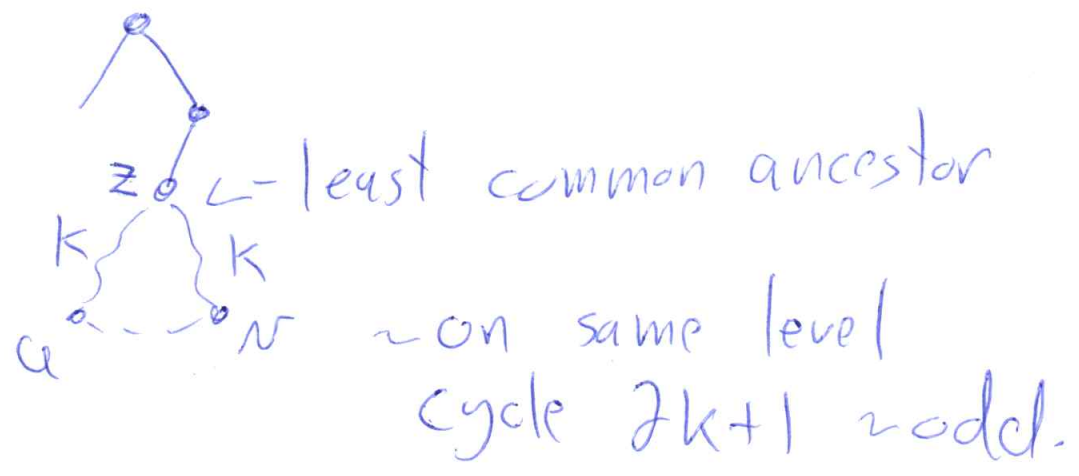 Z ← least common ancestor
K K
u v ~ on same level
cycle 2k+1 ~ odd.